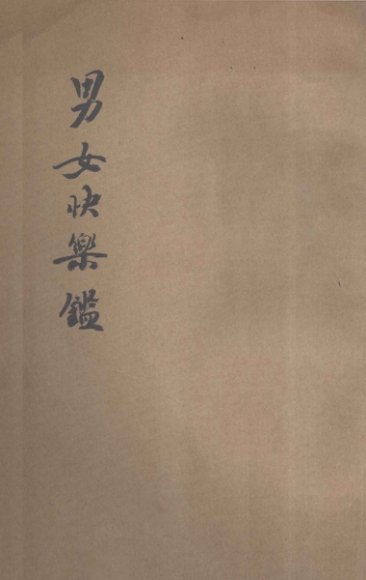 男女快樂鑑